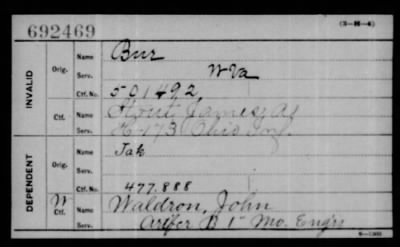 692469
(3-M-4)
INVALID
Orig.
Name
Bur
Serv.
W Va
Ctf. No.
501492
Ctf.
Name
Hout, James A.
Serv.
H 173 Ohio Inf.
DEPENDENT
Orig.
Name
Jak
Serv.
Ctf. No.
477.888
W
Ctf.
Name
Waldron, John
Serv.
Artfcr B 1" Mo. Engrs